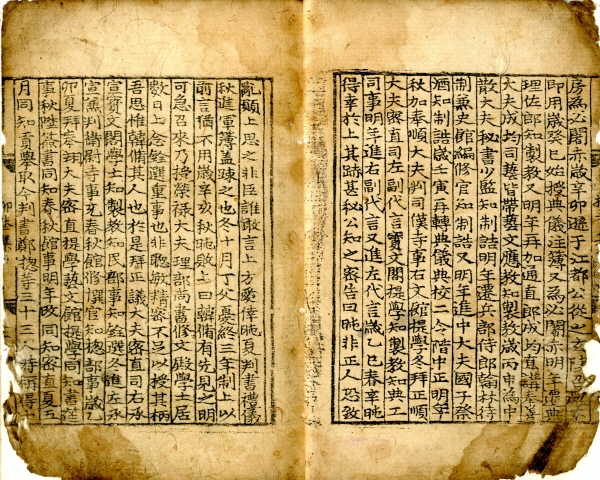 房爲必闍赤歲辛卯遜于江都公從之玄陵
即用歲癸巳始授典儀注簿又爲必闍赤明年遷典
理佐郎知製教又明年再加通直郎成均直講奉善
大夫成均司藝皆帶藝文應教知製教歲丙申爲中
散大夫秘書少監知制誥明年遷兵部侍郎翰林待
制兼史館編修官知制誥又明年進中大夫國子祭
酒知制誥歲壬寅再轉典儀典校二令階中正明年
秋加奉順大夫判司僕寺事右文館提學冬拜正順
大夫密直司左副代言寶文閣提學知製教知典工
司事明年進右副代言又進左代言歲乙巳春辛旽
得幸於上其跡甚秘公知之密告曰旽非正人恐致
亂願上思之非臣誰敢言上方惑倖旽夏判書禮儀
秋進軍簿盖疎之也冬十月丁父憂終三年制上以
前言猶不用歲辛亥秋旽敗上曰韓脩有先見之明
可急召來乃擢榮祿大夫理部尙書修文殿學士居
數日上念銓選重事也非聰敏精密不足以授其柄
吾思惟韓脩其人也於是拜正議大夫密直司右承
宣寶文閣學士知製教知民部事知銓選冬進左承
宣兼判衛尉寺事充春秋館修撰官知摠部事歲
卯夏拜奉翊大夫密直提學藝文館提學同知書筵
事秋陞簽書同知春秋館事明年改同知密直夏五
月同知貢擧取今判書鄭摠等三十三人時稱得